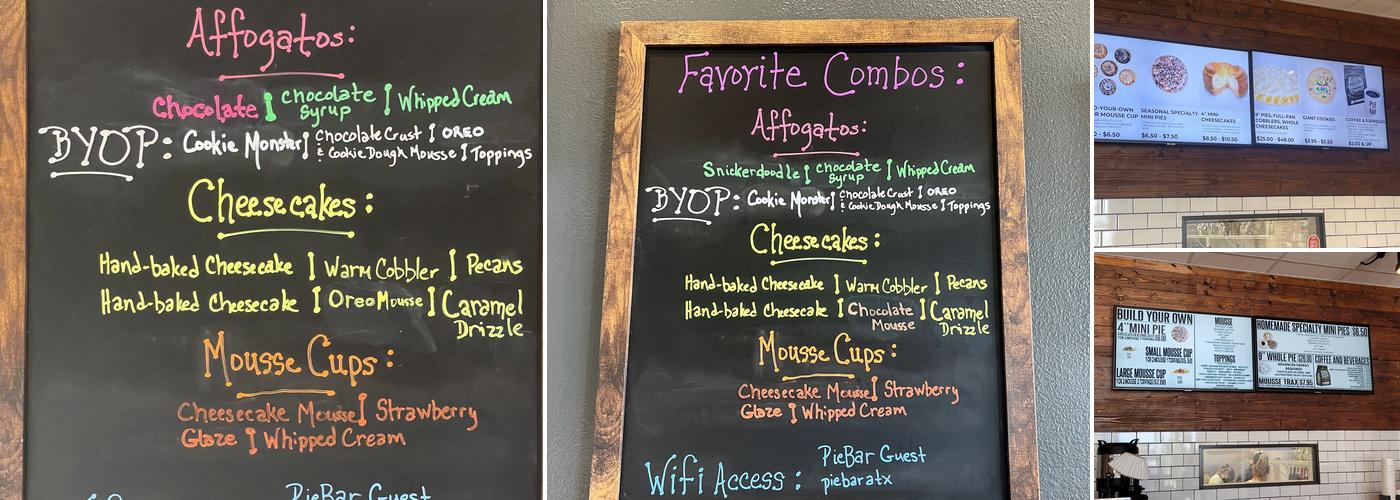 Affogatos:
Chocolate | Chocolate Syrup | Whipped Cream
BYOP: Cookie Monster | Chocolate Crust | OREO
& Cookie Dough Mousse | Toppings
Cheesecakes:
Hand-baked Cheesecake | Warm Cobbler | Pecans
Hand-baked Cheesecake | Oreo Mousse | Caramel
Drizzle
Mousse Cups:
Cheesecake Mousse | Strawberry
Glaze | Whipped Cream
PieBar Guest
Favorite Combos:
Affogatos:
Snickerdoodle | Chocolate Syrup | Whipped Cream
BYOP: Cookie Monster | Chocolate Crust | OREO
& Cookie Dough Mousse | Toppings
Cheesecakes:
Hand-baked Cheesecake | Warm Cobbler | Pecans
Hand-baked Cheesecake | Chocolate Mousse | Caramel
Drizzle
Mousse Cups:
Cheesecake Mousse | Strawberry
Glaze | Whipped Cream
Wifi Access: PieBar Guest
piebaratx
D-YOUR-OWN
R MOUSSE CUP
- $6.50
SEASONAL SPECIALTY
MINI PIES
$6.50 - $7.50
4" MINI
CHEESECAKES
$8.50 - $10.50
9" PIES, FULL-PAN
COBBLERS, WHOLE
CHEESECAKES
$25.00 - $48.00
GIANT COOKIES
$3.95 - $5.50
COFFEE & ESPRESSO
$2.00 & UP
BUILD YOUR OWN
4" MINI PIE
SMALL MOUSSE CUP
LARGE MOUSSE CUP
MOUSSE
TOPPINGS
HOMEMADE SPECIALTY MINI PIES $6.50
9" WHOLE PIE
COFFEE AND BEVERAGES
MOUSSE TRAX $7.95